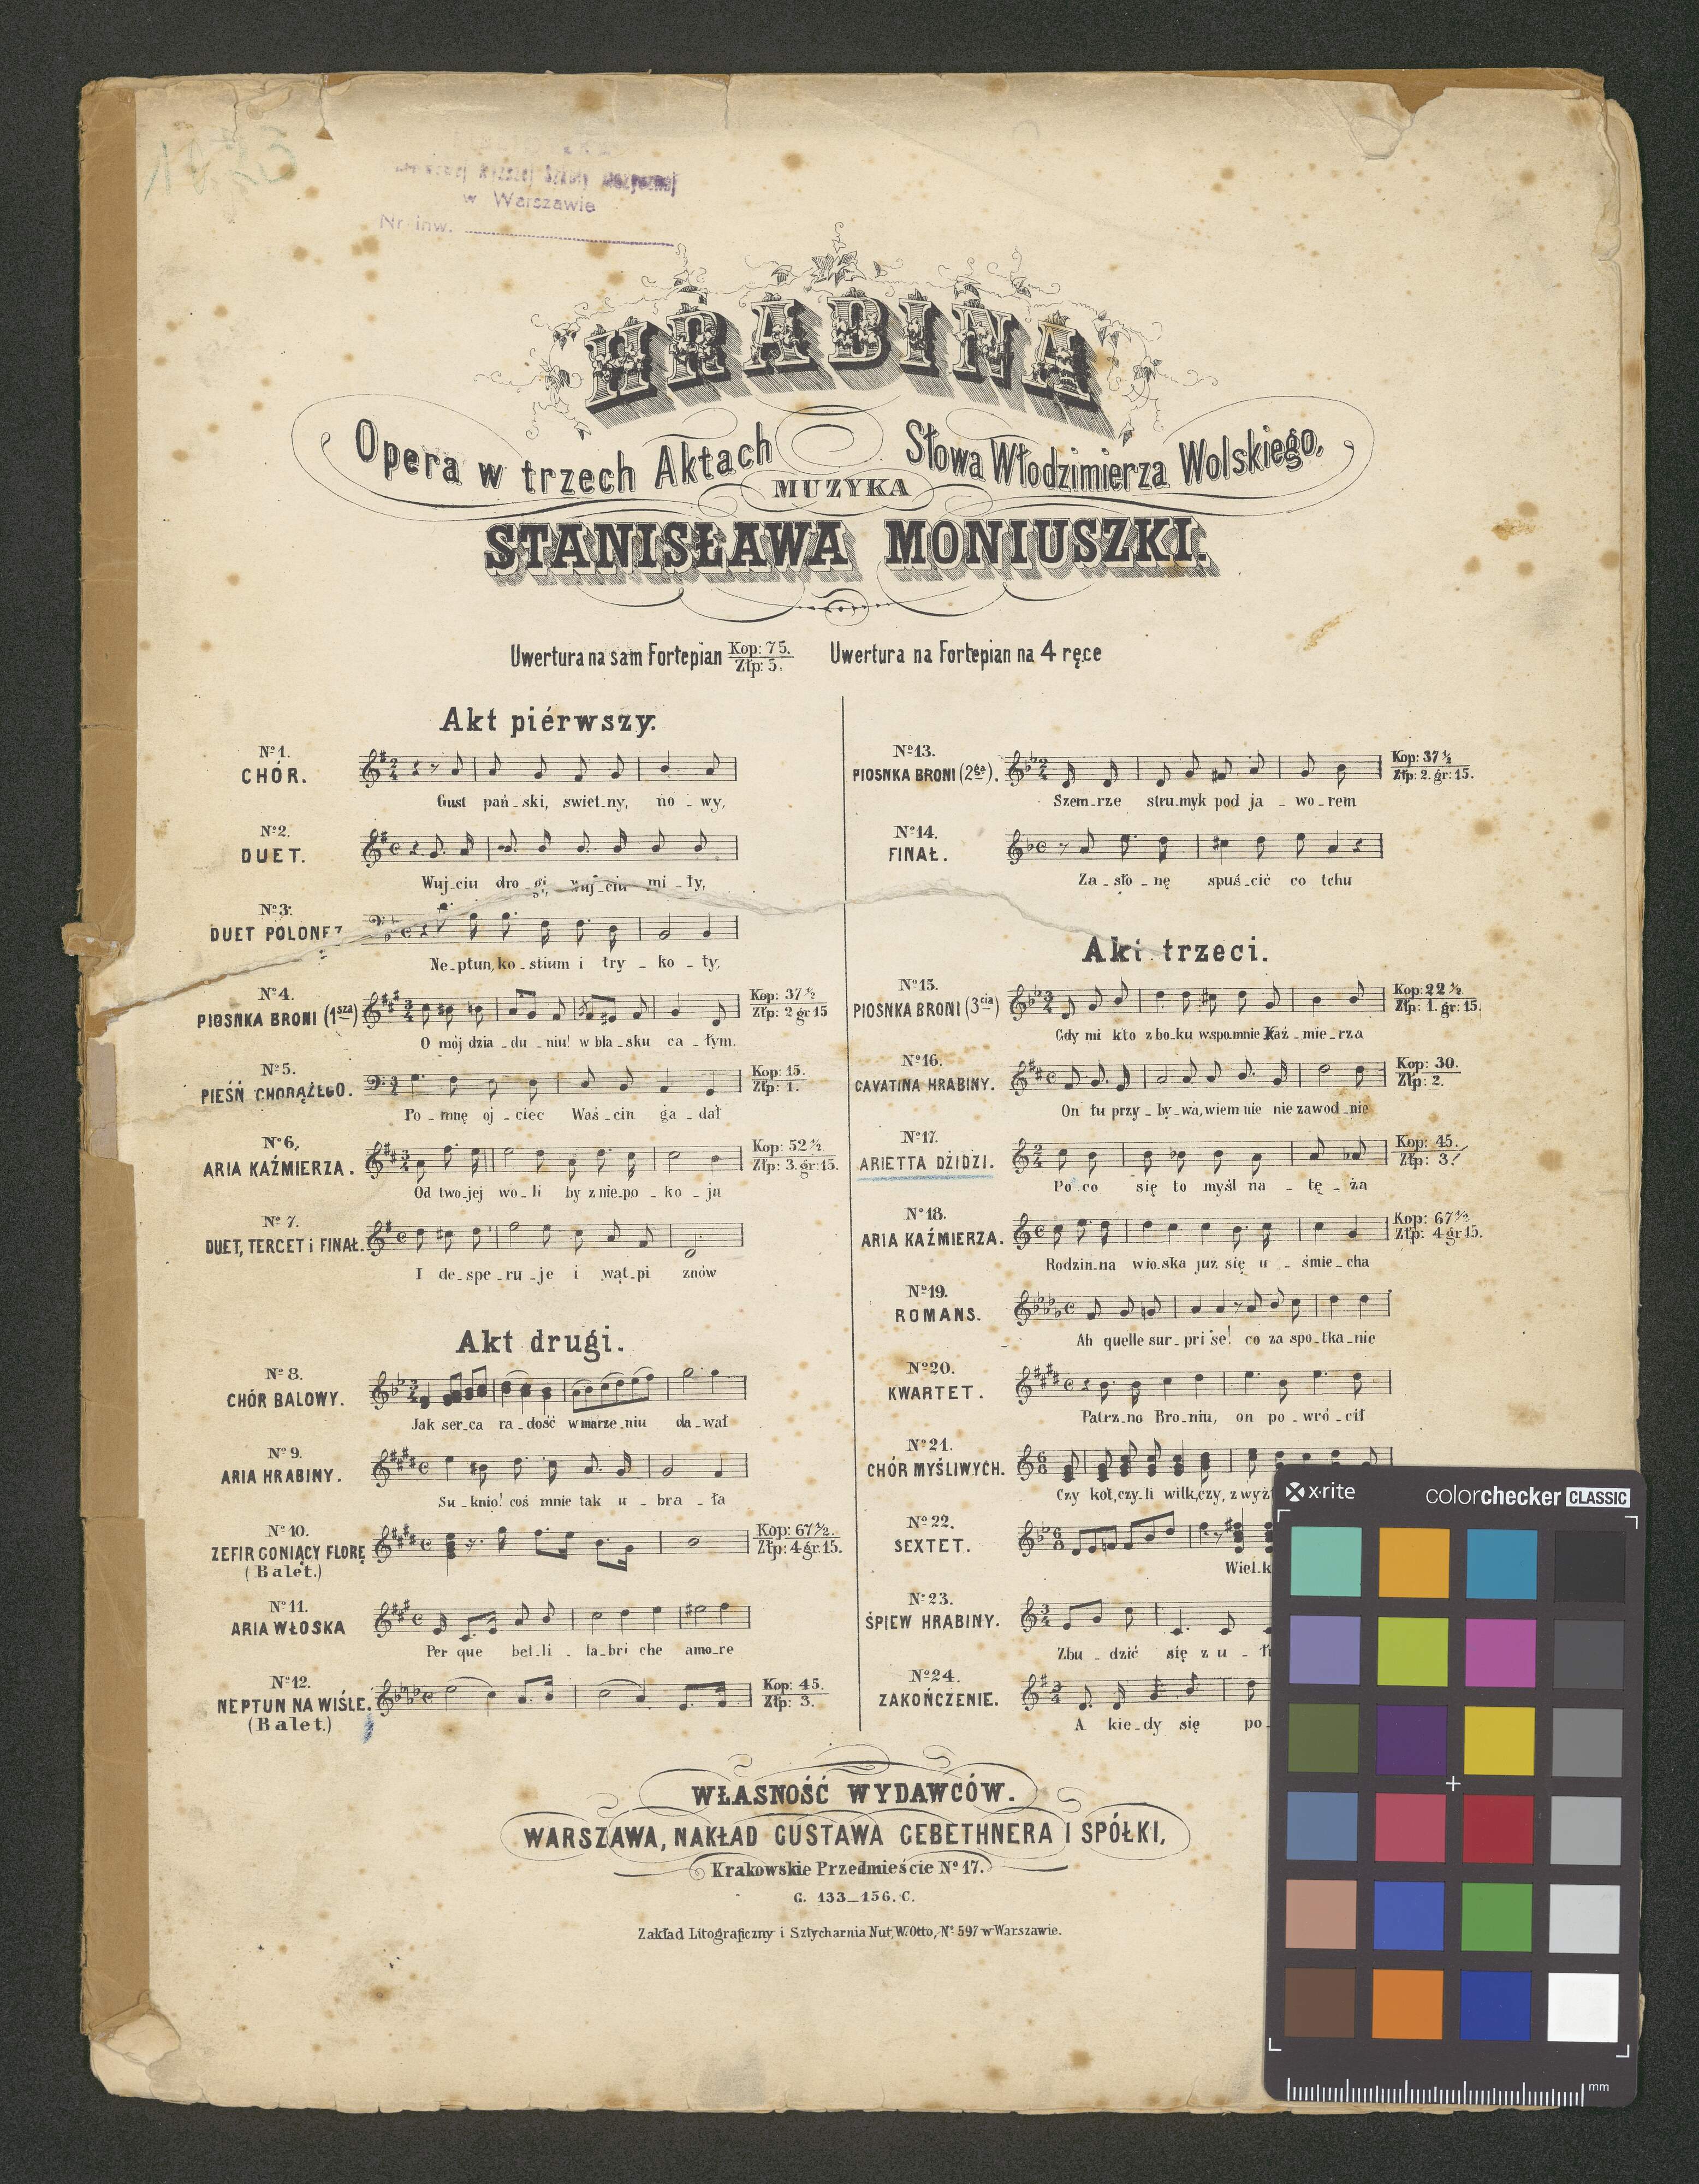 Szkoły Muzycznej
w Warszawie
Nr inw.
HRABINA
Opera w trzech Aktach Słowa Włodzimierza Wolskiego,
MUZYKA
STANISŁAWA MONIUSZKI.
Uwertura na sam Fortepian Kop: 75. Złp: 5. Uwertura na Fortepian na 4 ręce
Akt piérwszy.
Nº 1.
CHÓR.
Gust pań_ski, swiet_ny, no_wy,
Nº 2.
DUET.
Wuj_ciu dro_gi, wuj_ciu mi_ły,
Nº 3.
DUET POLONEZ
Ne_ptun, ko_stium i try_ko_ty,
Nº 4.
PIOSNKA BRONI (1sza)
Kop: 37½
Złp: 2 gr 15
O mój dzia_du_niu! w bla_sku ca_łym.
Nº 5.
PIEŚŃ CHORĄŻEGO.
Kop: 15.
Złp: 1.
Po_mnę oj_ciec Waś_cin ga_dał
Nº 6.
ARIA KAŹMIERZA.
Kop: 52½
Złp: 3. gr: 15.
Od two_jej wo_li by z nie_po_ko_ju
Nº 7.
DUET, TERCET i FINAŁ.
I de_spe_ru_je i wąt_pi znów
Akt drugi.
Nº 8.
CHÓR BALOWY.
Jak ser_ca ra_dość w marze_niu da_wał
Nº 9.
ARIA HRABINY.
Su_knio! coś mnie tak u_bra_ła
Nº 10.
ZEFIR GONIĄCY FLORĘ
(Balet.)
Kop: 67½.
Złp: 4 gr: 15.
Nº 11.
ARIA WŁOSKA
Per que bel_li_la_bri che amo_re
Nº 12.
NEPTUN NA WIŚLE.
(Balet.)
Kop: 45.
Złp: 3.
Nº 13.
PIOSNKA BRONI (2ga).
Kop: 37½
Złp: 2. gr: 15.
Szem_rze stru_myk pod ja_wo_rem
Nº 14.
FINAŁ.
Za_sło_nę spuś_cić co tchu
Akt trzeci.
Nº 15.
PIOSNKA BRONI (3cia)
Kop: 22½.
Złp: 1. gr: 15.
Gdy mi kto z bo_ku wspo_mnie Kaź_mie_rza
Nº 16.
CAVATINA HRABINY.
Kop: 30.
Złp: 2.
On tu przy_by_wa, wiem nie nie zawod_nie
Nº 17.
ARIETTA DZIDZI.
Kop: 45.
Złp: 3.
Po co się to myśl na_tę_ża
Nº 18.
ARIA KAŹMIERZA.
Kop: 67½
Złp: 4 gr 15.
Rodzin_na wio_ska już się u_śmie_cha
Nº 19.
ROMANS.
Ah quelle sur_pri se! co za spo_tka_nie
Nº 20.
KWARTET.
Patrz_no Bro_niu, on po_wró_cił
Nº 21.
CHÓR MYŚLIWYCH.
Czy kot, czy_li wilk, czy, z wyż
Nº 22.
SEXTET.
Wiel_k
Nº 23.
ŚPIEW HRABINY.
Zbu_dzić się z u_
Nº 24.
ZAKOŃCZENIE.
A kie_dy się po_
WŁASNOŚĆ WYDAWCÓW.
WARSZAWA, NAKŁAD GUSTAWA GEBETHNERA I SPÓŁKI,
Krakowskie Przedmieście Nº 17.
G. 133_156. C.
Zakład Litograficzny i Sztycharnia Nut, W. Otto, Nº 597 w Warszawie.
x·rite colorchecker CLASSIC
mm